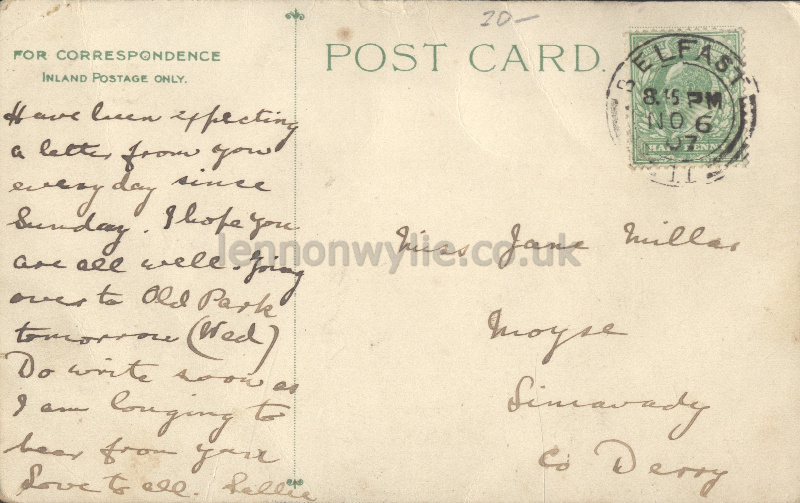 20-
FOR CORRESPONDENCE
INLAND POSTAGE ONLY.
POST CARD.
BELFAST
8.45 PM
NO 6
07
HALFPENNY
11
Have been expecting
a letter from you
everyday since
Sunday. I hope you
are all well. Going
over to Old Park
tomorrow (Wed)
Do write soon as
I am longing to
hear from you
Love to all. Sallie
Miss Jane Millar
Moyse
Limavady
Co Derry
lennonwylie.co.uk